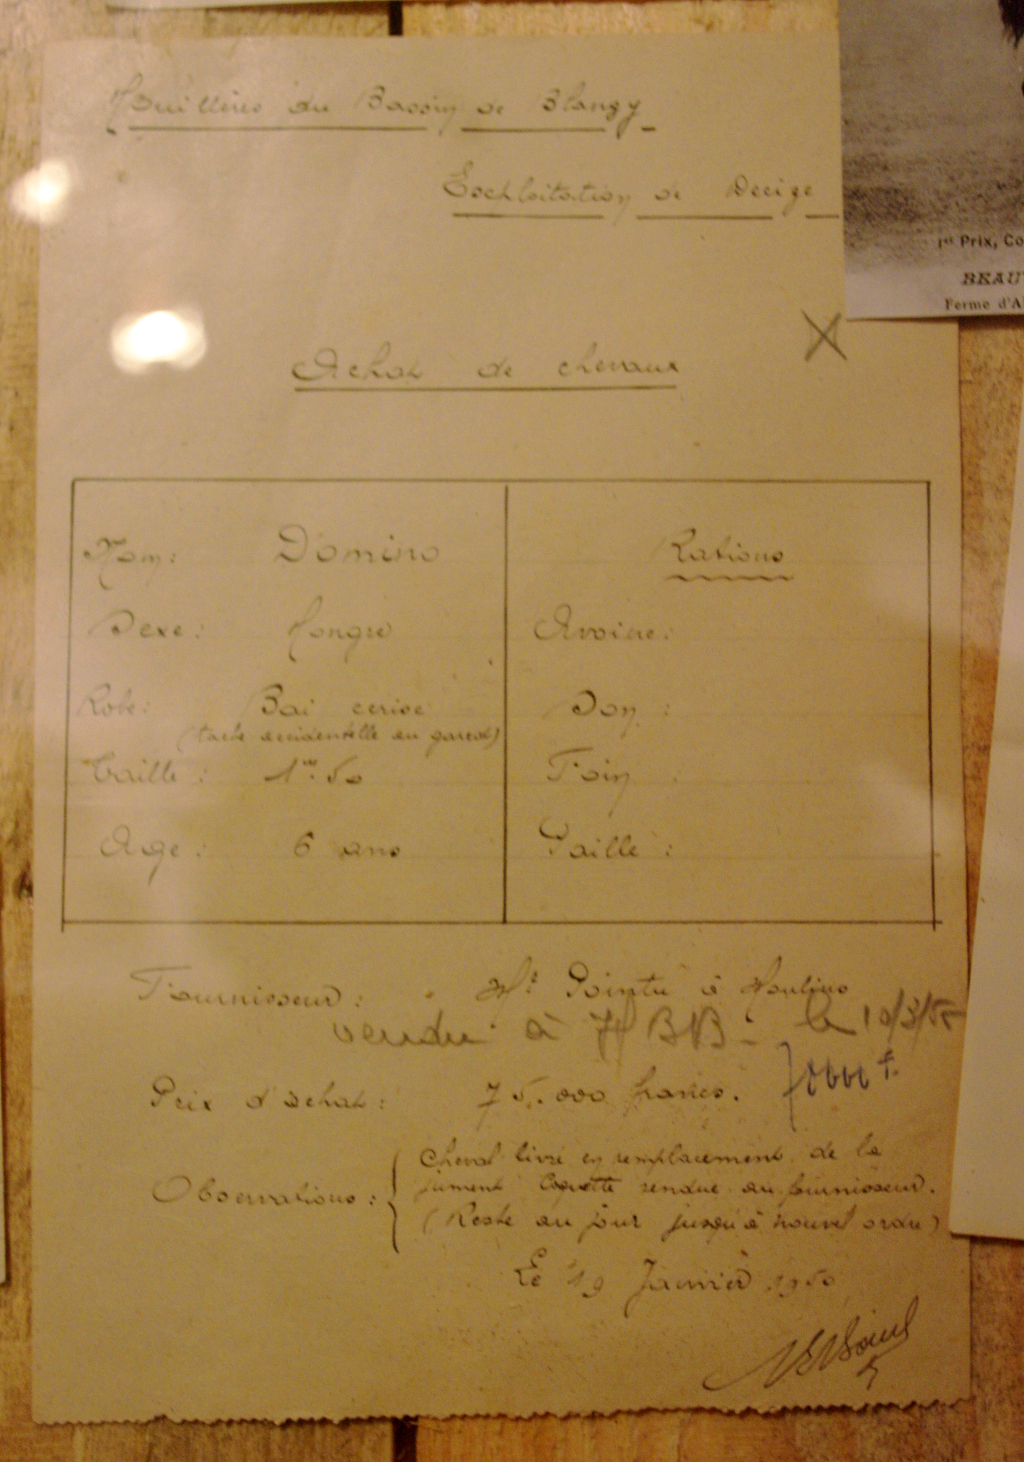 Houillères du Bassin de Blangy
Exploitation de Decize
1er Prix, Co
BEAU
Ferme d'A
Achat de chevaux
Nom: Domino
Sexe: Hongre
Robe: Bai cerise
(tache accidentelle au garrot)
Taille: 1m.50
Age: 6 ans
Rations
Avoine:
Son:
Foin:
Paille:
Fournisseur: Mr Pointu à Moulins
vendu à HBB. le 10/3/55
Prix d'achat: 75.000 francs.
Observations: Cheval livré en remplacement de la
jument Coquette rendue au fournisseur.
(Reste au jour jusqu'à nouvel ordre)
Le 19 Janvier 1950